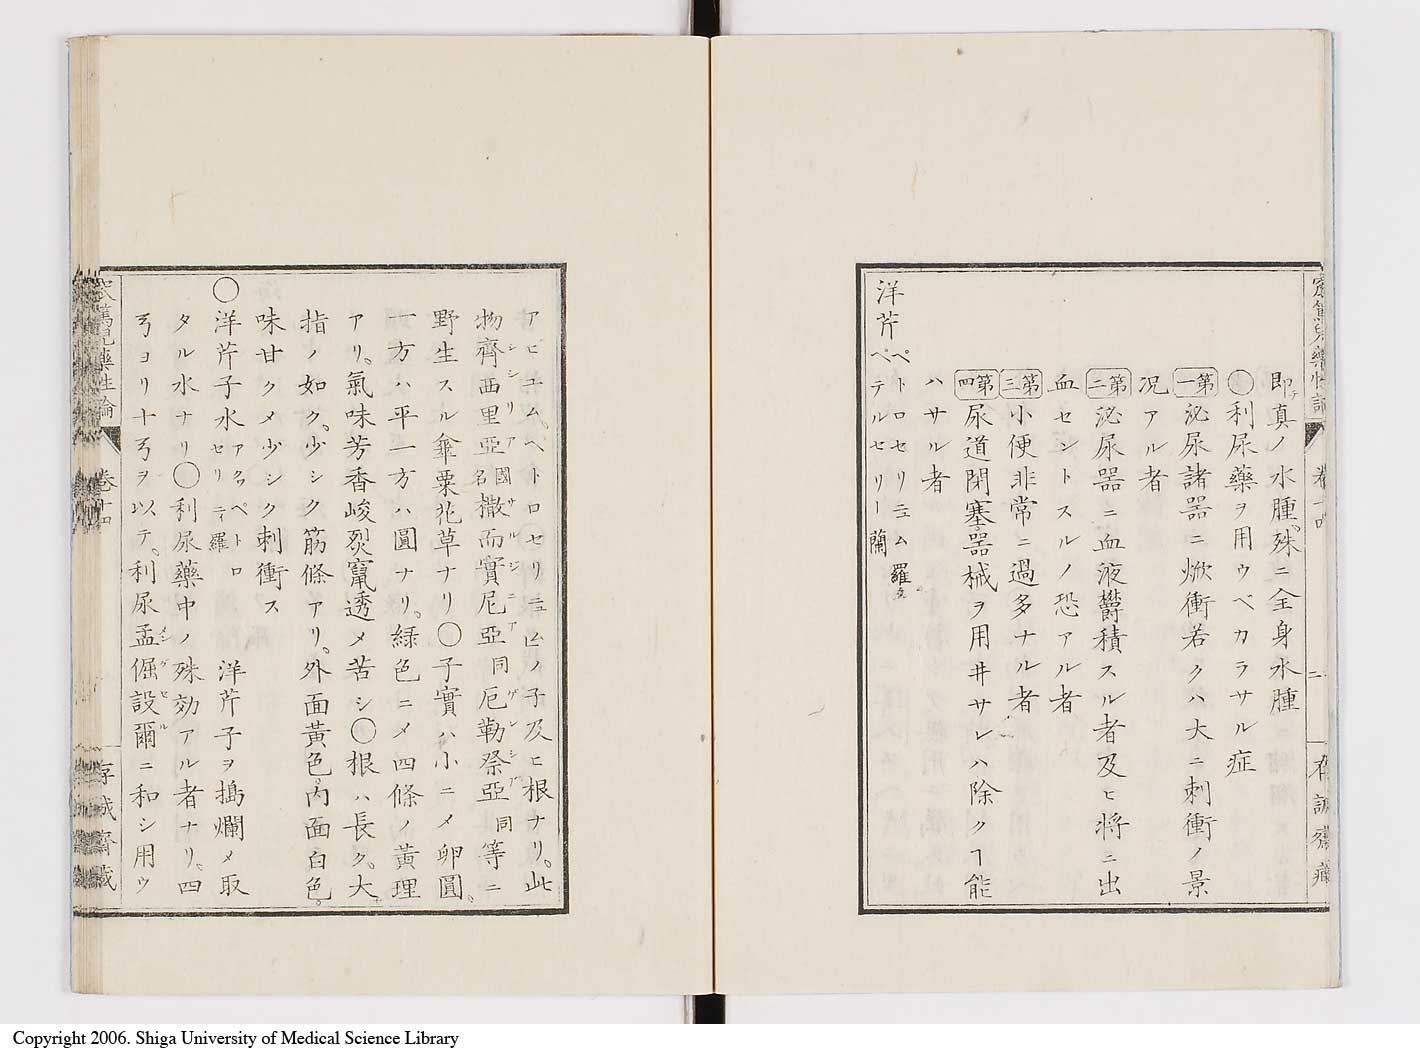 即チ真ノ水腫。殊ニ全身水腫
◯利尿藥ヲ用ウベカラサル症
第一 泌尿諸器ニ焮衝若クハ大ニ刺衝ノ景
况アル者
第二 泌尿器ニ血液欝積スル者及ヒ将ニ出
血セントスルノ恐アル者
第三 小便非常ニ過多ナル者
第四 尿道閉塞。器械ヲ用井サレハ除クヿ能
ハサル者
洋芹 ペトロセリニュム 羅 ペテルセリー 蘭
卷十四
二
存誠齋藏
アピユム。ペトロセリニュムノ子及ヒ根ナリ。此
物齊西里亞シシリア國名撒而實尼亞サルジニア同厄勒祭亞ゲレシア同等ニ
野生スル傘粟花草ナリ◯子實ハ小ニメ卵圓。
一方ハ平一方ハ圓ナリ。緑色ニメ四條ノ黃理
アリ。氣味芳香峻烈竄透メ苦シ◯根ハ長ク。大
指ノ如ク。少シク筋條アリ。外面黃色。内面白色。
味甘クメ少シク刺衝ス
◯洋芹子水 アクワペトロセリニ 羅 洋芹子ヲ搗爛メ取
タル水ナリ◯利尿藥中ノ殊効アル者ナリ。四
ヲヨリ十ヲヲ以テ。利尿孟倔設爾メングセルニ和シ用ウ
篤兒藥性論
卷十四
存誠齋藏
Copyright 2006. Shiga University of Medical Science Library